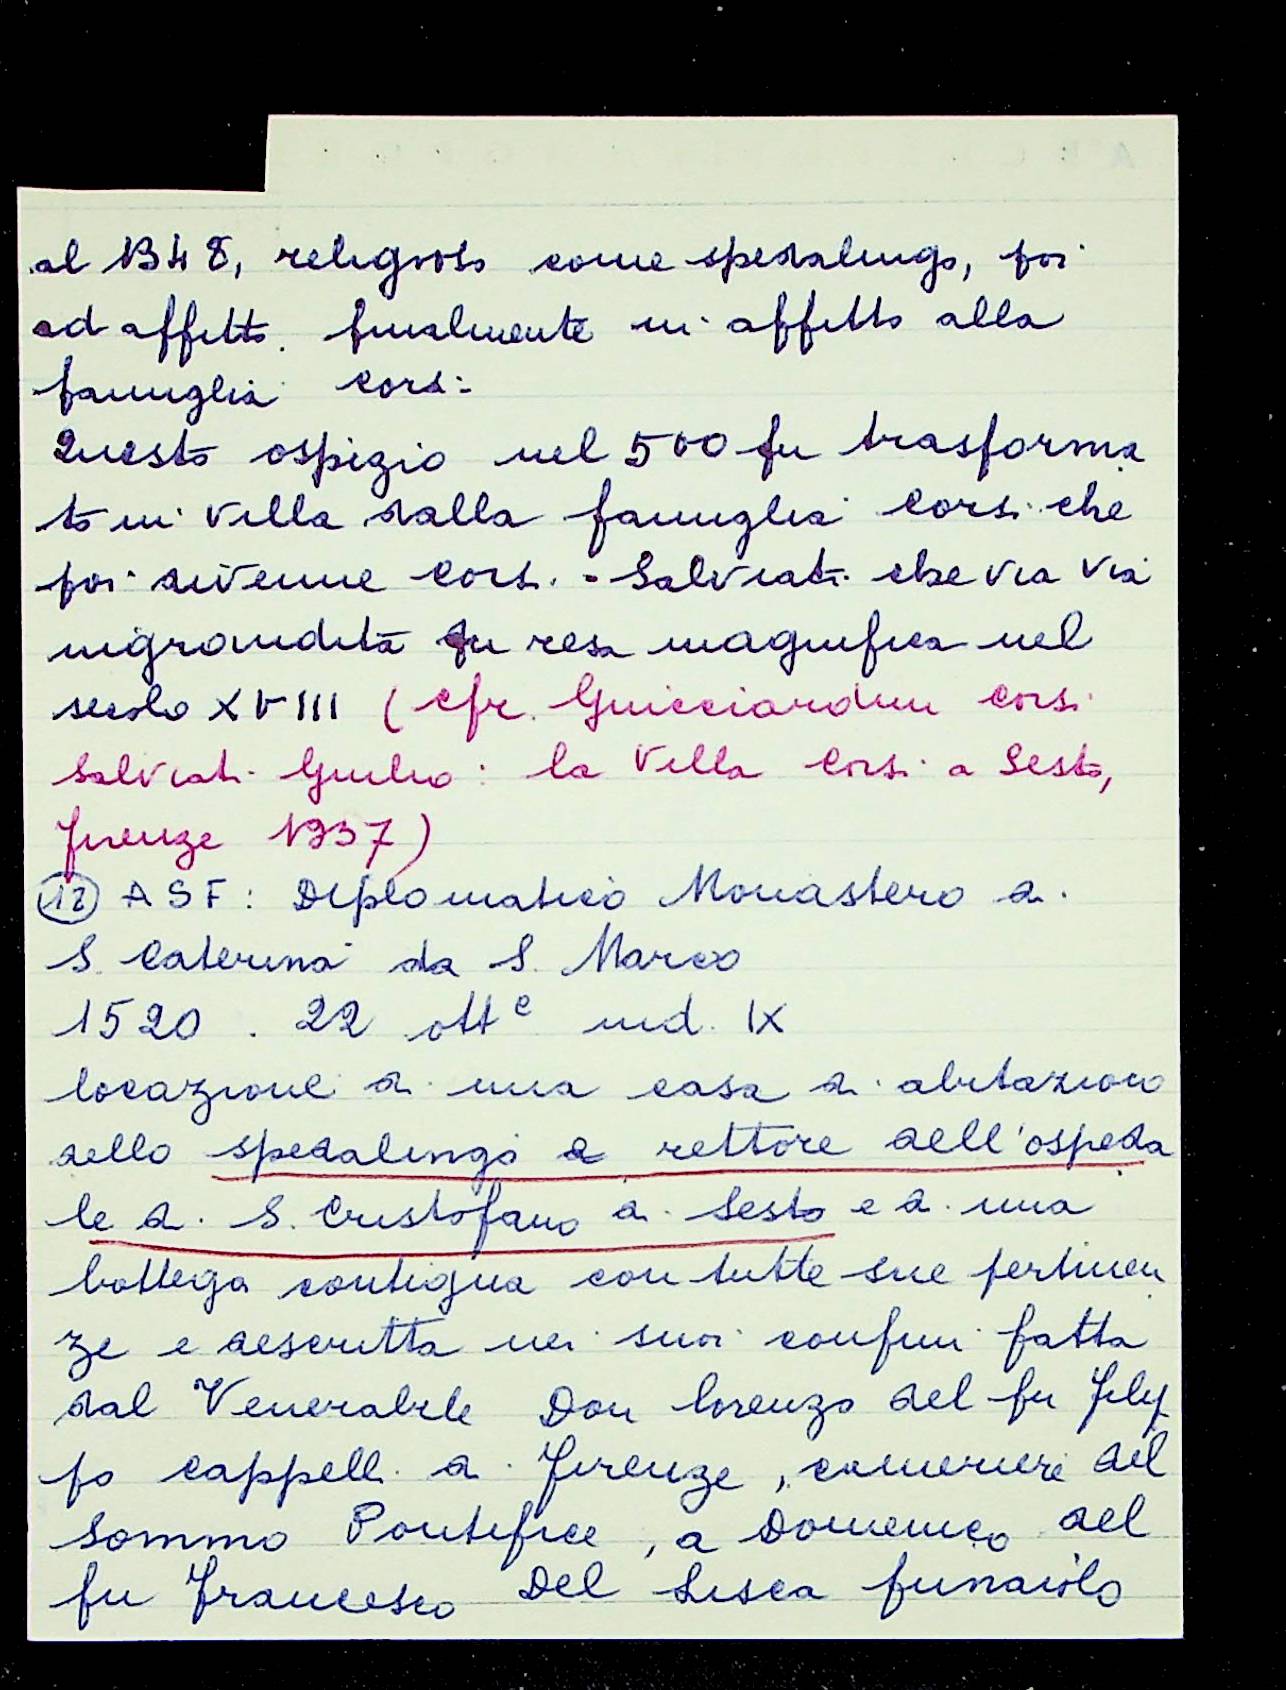 al 1348, religioso come spedalingo, poi
ad affitto. finalmente in affitto alla
famiglia Corsi.
Questo ospizio nel 500 fu trasforma
to in villa dalla famiglia Corsi che
poi divenne Corsi - Salviati che via via
ingrandita fu resa magnifica nel
secolo XVIII (cfr. Guicciardini Corsi
Salviati Giulio: la Villa Corsi a Sesto,
Firenze 1937)
(12) ASF: Diplomatico Monastero di
S. Caterina da S. Marco
1520. 22 ottᵉ ind. IX
locazione di una casa di abitazione
dello spedalingo e rettore dell'ospeda
le di S. Cristofano di Sesto e di una
bottega contigua con tutte sue pertinen
ze e descritta nei suoi confini fatta
dal Venerabile Don Lorenzo del fu Filip
po Cappelli di Firenze, cameriere del
Sommo Pontefice, a Domenico del
fu Francesco Del Lisca funaiolo